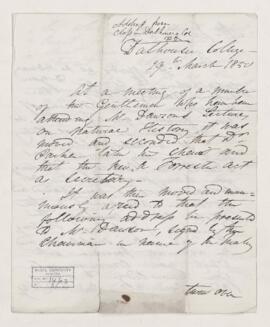 Address from
Class in Dalhousie Col
Dalhousie College
19th March 1850
At a meeting of a number
of the Gentlemen who have been
attending Mr Dawson's Lectures
on Natural History it was
moved and seconded that Dr
take the Chair and
that the Rev A Forrester act
as Secretary
It was then moved and una-
nimously agreed to that the
following address be presented
to Mr Dawson, signed by the
Chairman in name of the
turn over